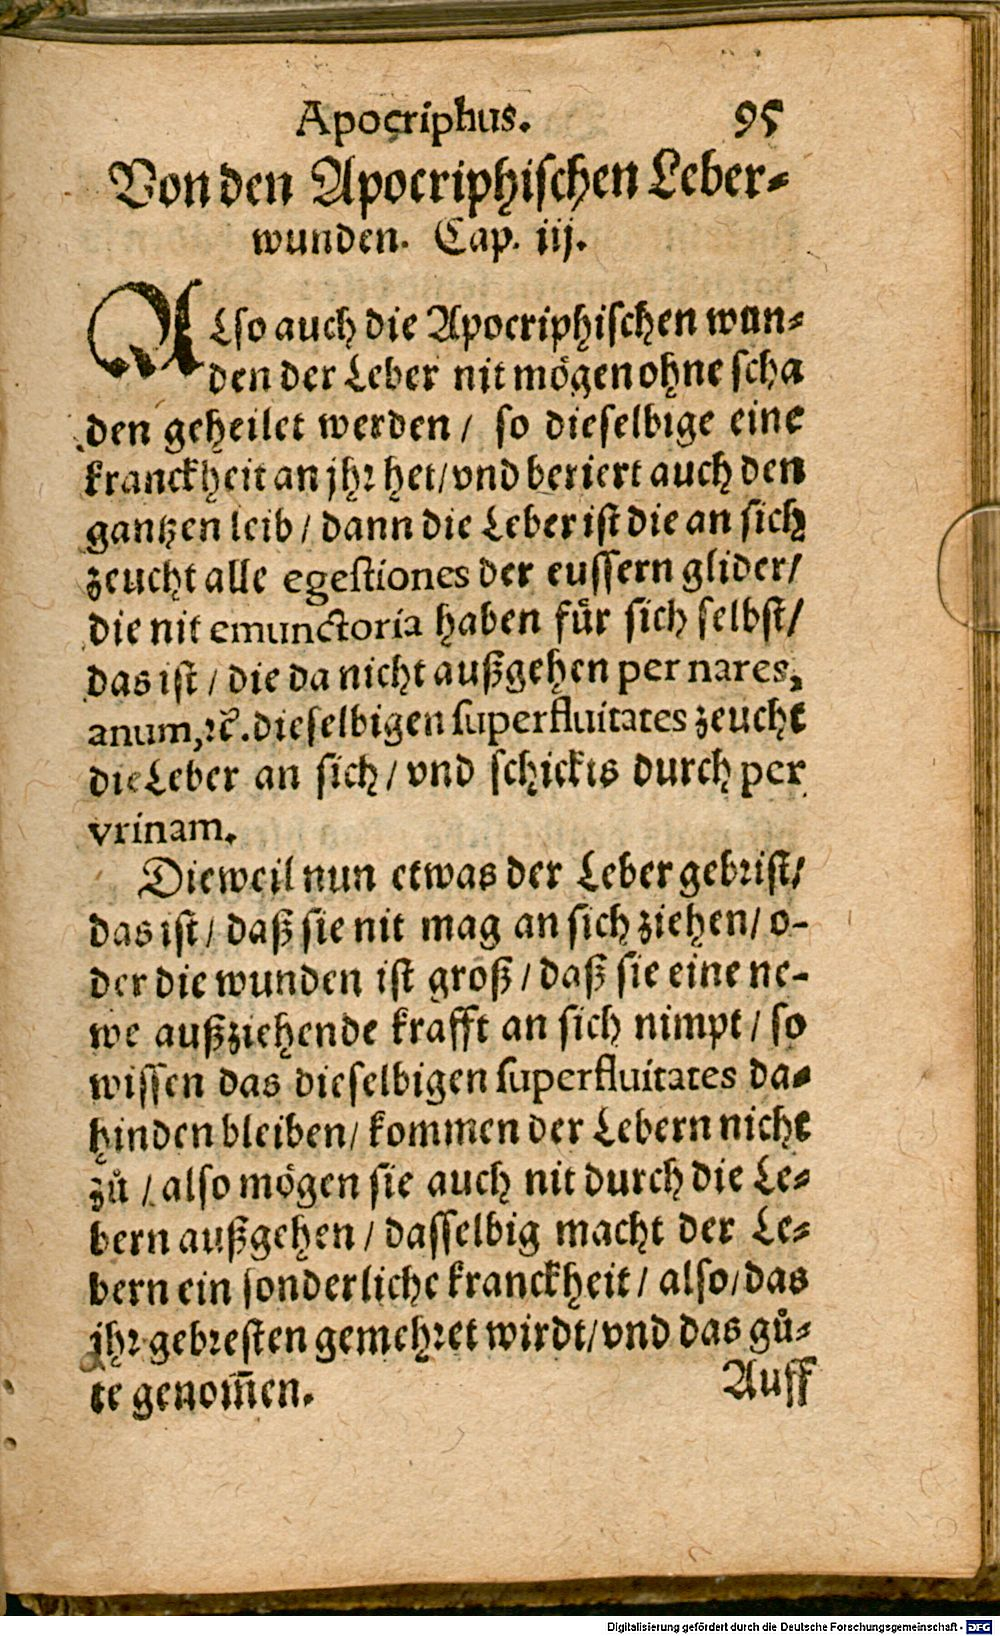 Apocriphus. 95
Von den Apocriphischen Leber-
wunden. Cap. iij.
ALso auch die Apocriphischen wun-
den der Leber nit mögen ohne scha
den geheilet werden / so dieselbige eine
kranckheit an jhr het / vnd beriert auch den
gantzen leib / dann die Leber ist die an sich
zeucht alle egestiones der eussern glider /
die nit emunctoria haben fuͤr sich selbst /
das ist / die da nicht außgehen per nares,
anum, ꝛc̃. dieselbigen superfluitates zeucht
die Leber an sich / vnd schickts durch per
vrinam.
Dieweil nun etwas der Leber gebrist /
das ist / daß sie nit mag an sich ziehen / o-
der die wunden ist groß / daß sie eine ne-
we außziehende krafft an sich nimpt / so
wissen das dieselbigen superfluitates da-
hinden bleiben / kommen der Lebern nicht
zů / also mögen sie auch nit durch die Le-
bern außgehen / dasselbig macht der Le-
bern ein sonderliche kranckheit / also / das
jhr gebresten gemehret wirdt / vnd das gů-
te genom̃en.
Auff
Digitalisierung gefördert durch die Deutsche Forschungsgemeinschaft - DFG